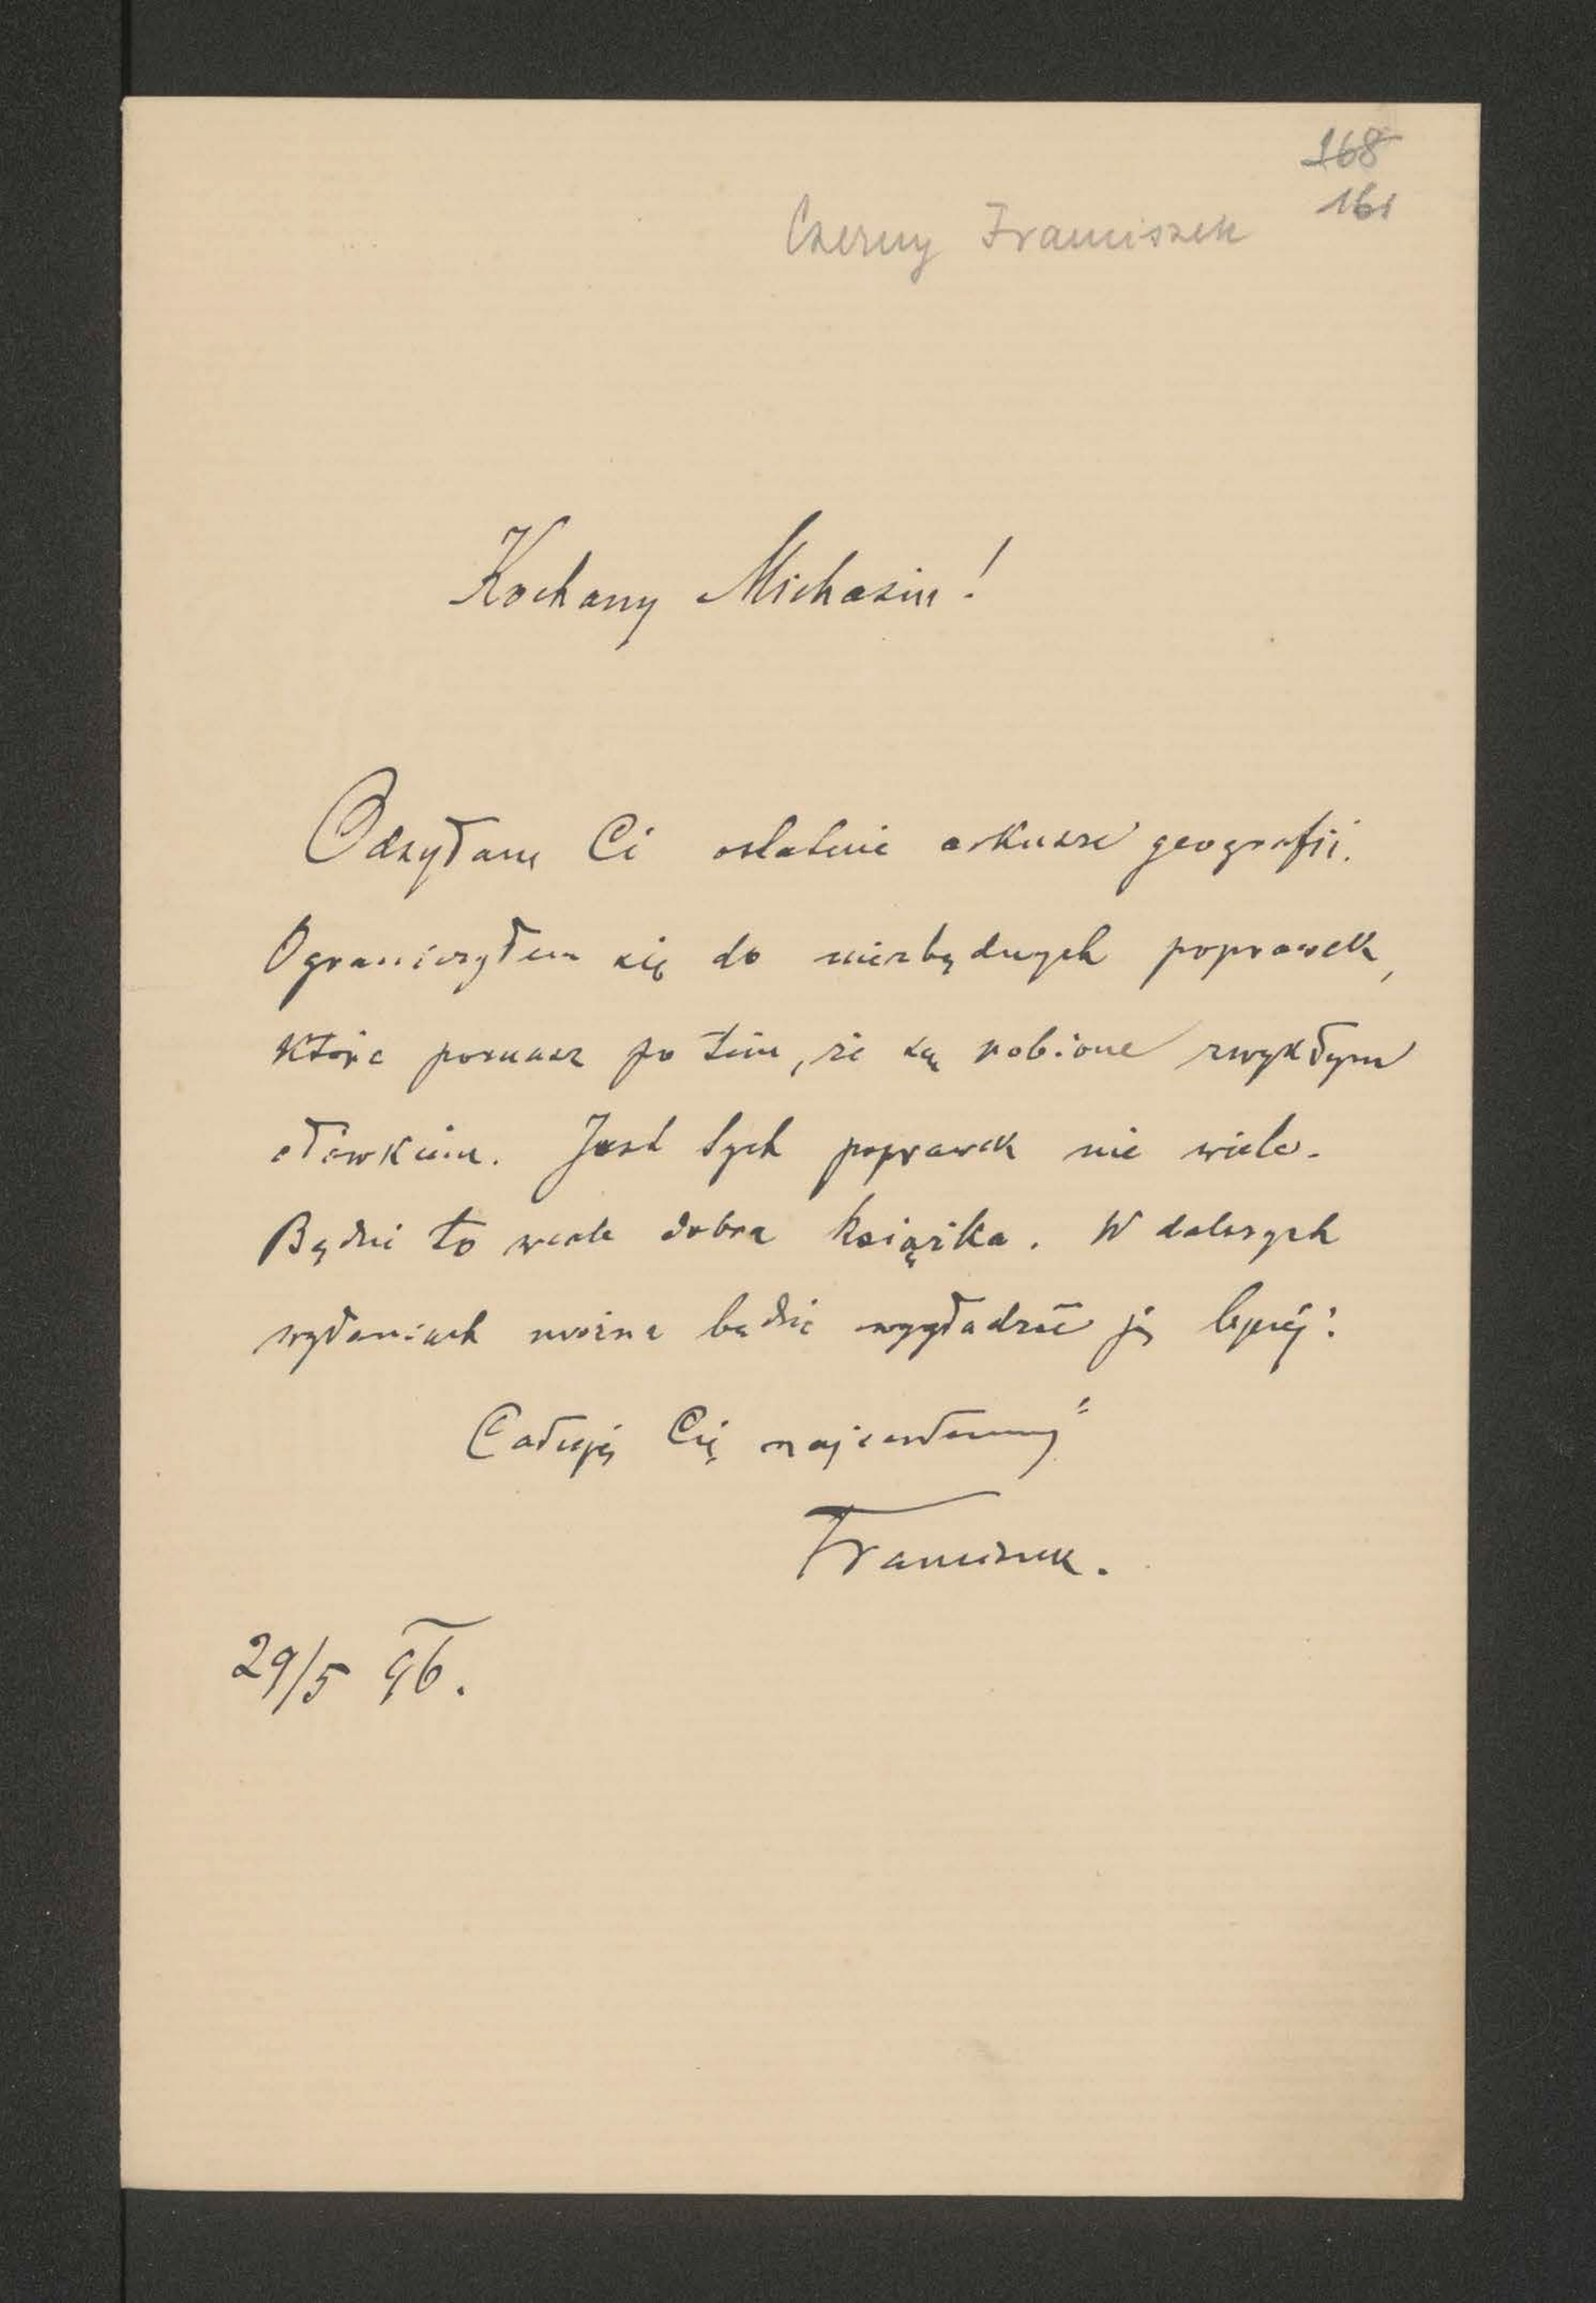 168
161
Czerny Franciszek
Kochany Michasiu!
Odsyłam Ci ostatnie arkusze geografii.
Ograniczyłem się do niezbędnych poprawek,
które poznasz po tem, że są robione zwykłym
ołówkiem. Jest tych poprawek nie wiele.
Będzie to wcale dobra książka. W dalszych
wydaniach można będzie wygładzić ją lepiej.
Całuję Cię najserdeczniej
Franciszek.
29/5 96.